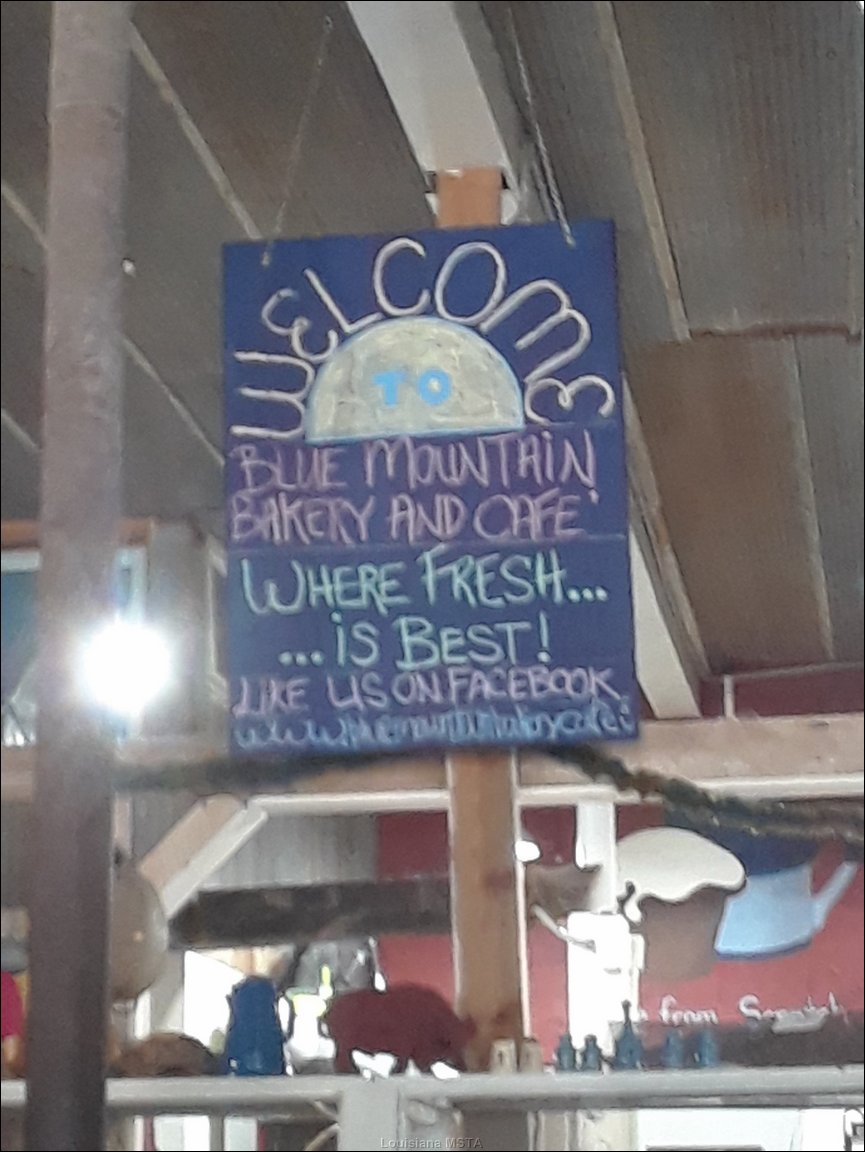 WELCOME
TO
BLUE MOUNTAIN
BAKERY AND CAFE'
WHERE FRESH...
...iS BEST!
LIKE US ON FACEBOOK
from Scratch
Louisiana MSTA